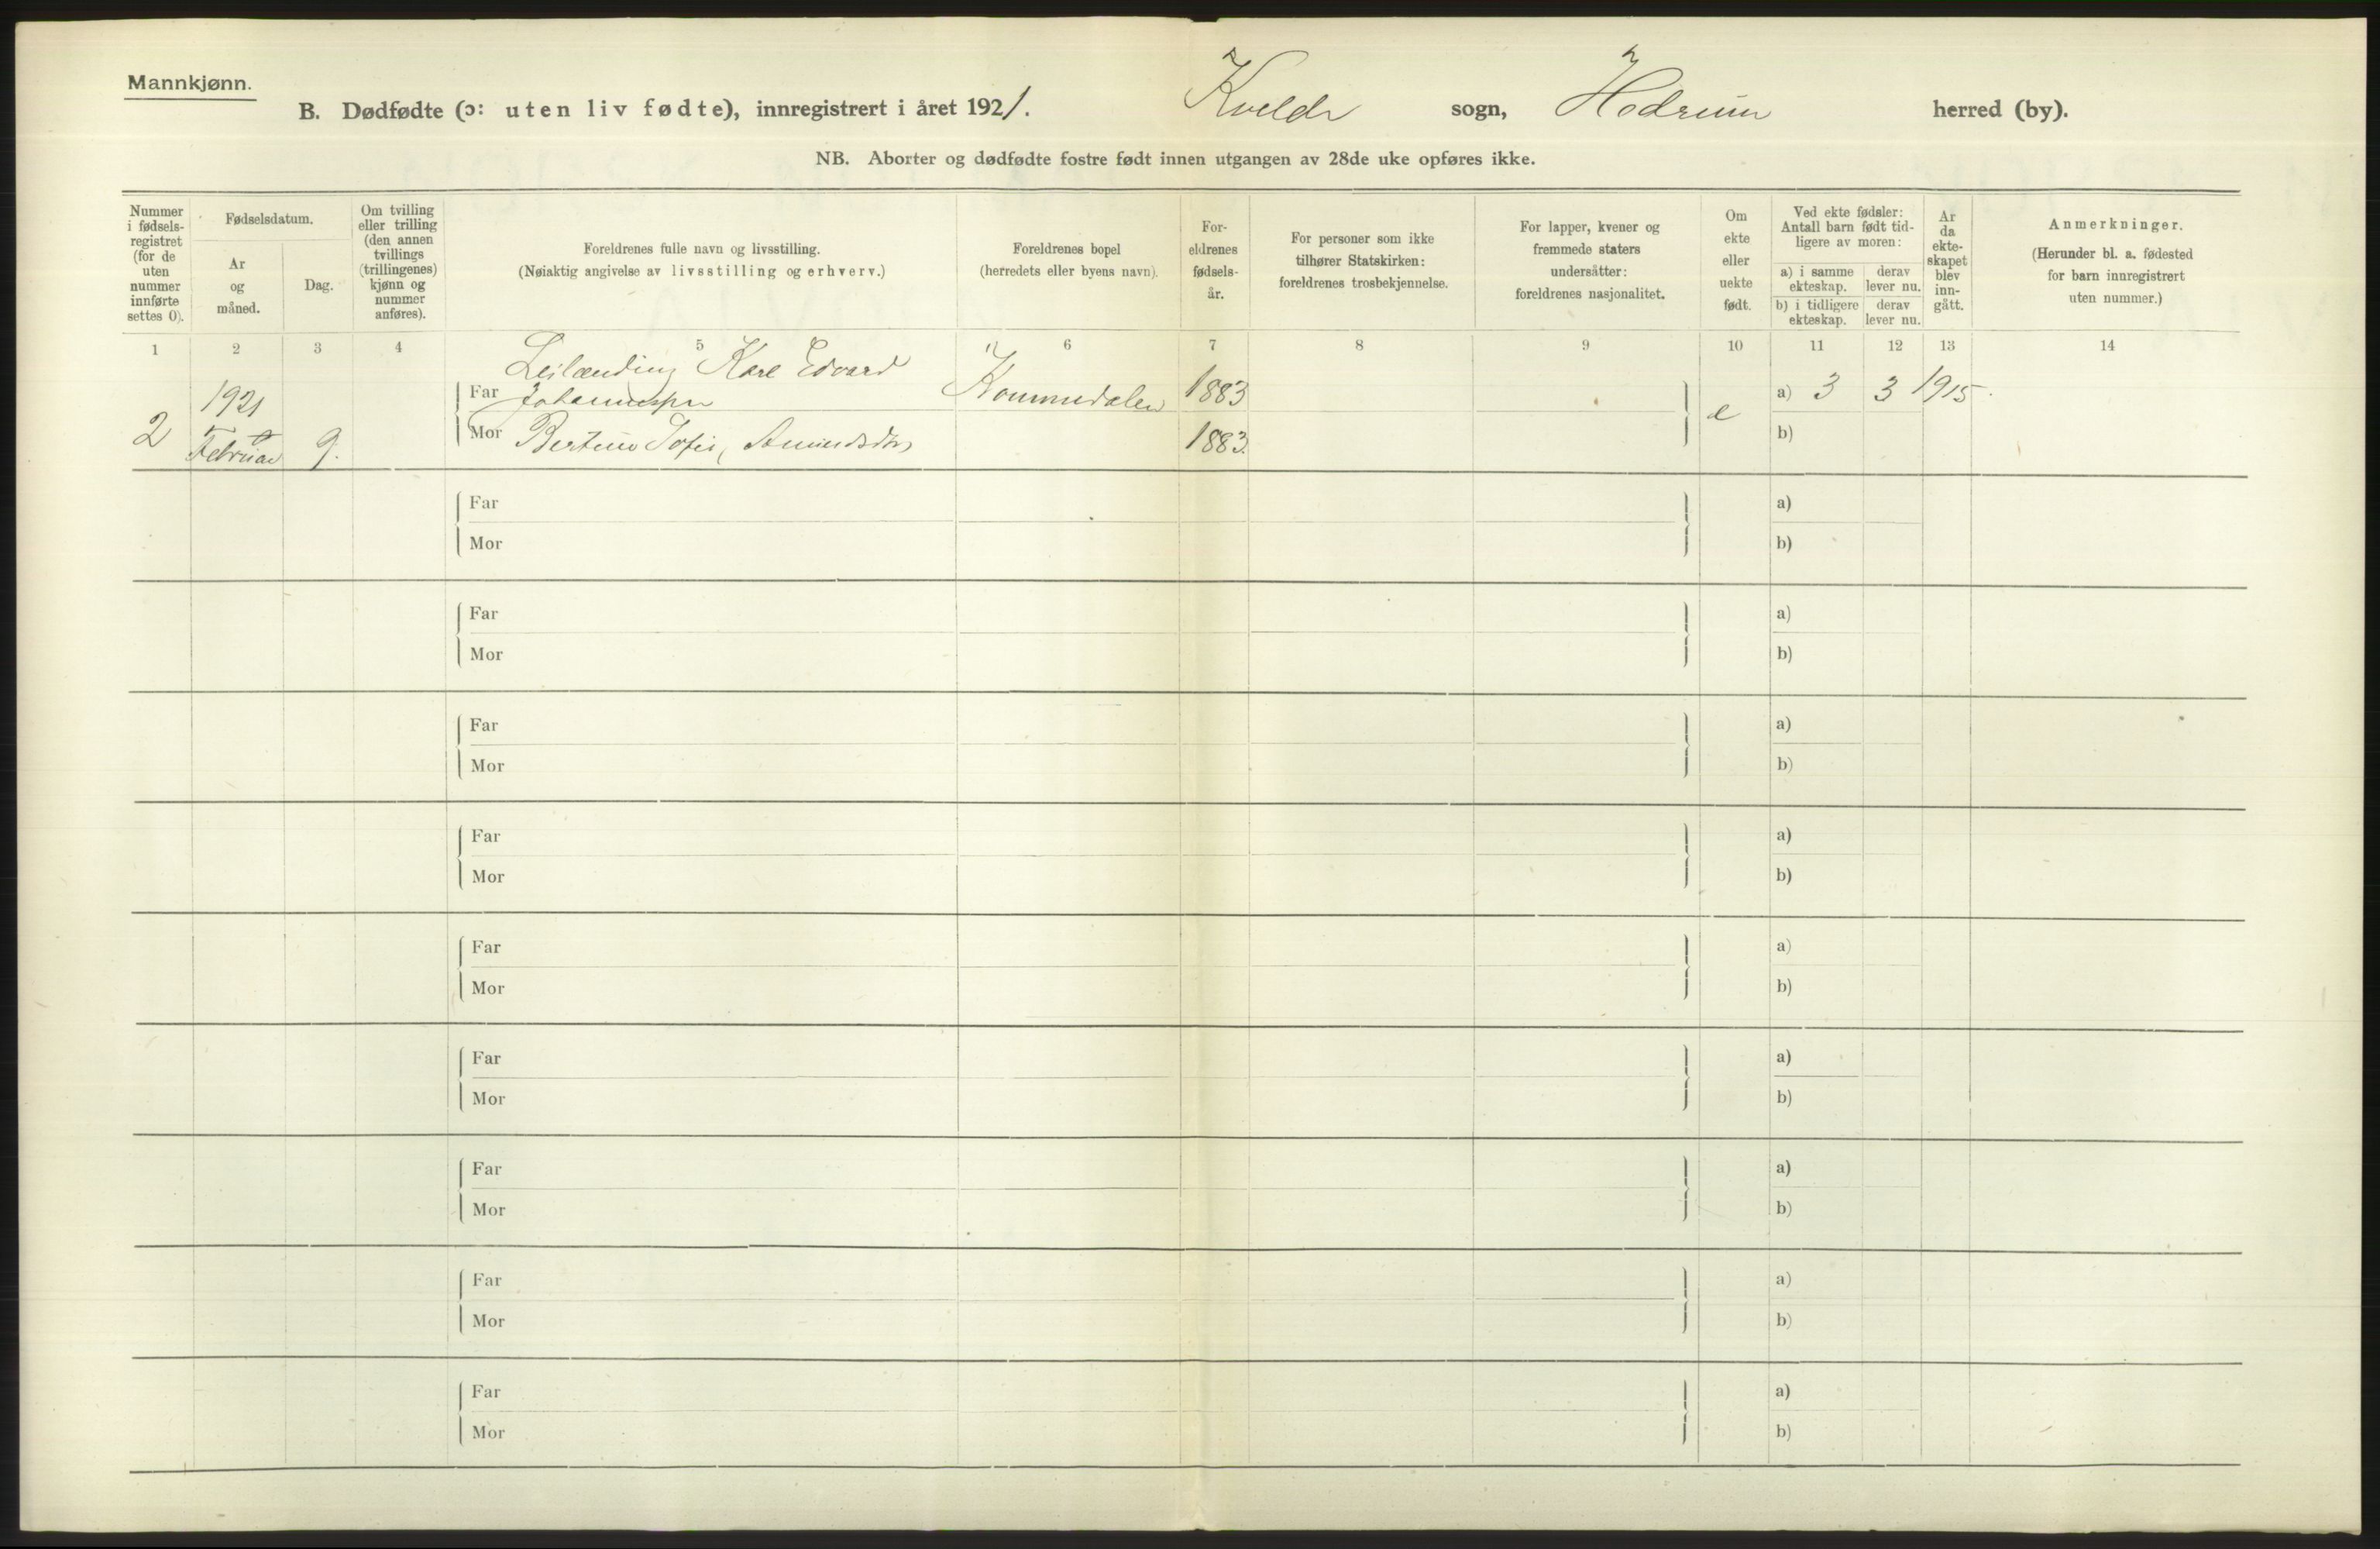 Mannkjønn.
B. Dødfødte (ɔ: uten liv fødte), innregistrert i året 1921. Kvelde sogn, Hedrum herred (by).
NB. Aborter og dødfødte fostre født innen utgangen av 28de uke opføres ikke.
Nummer i fødsels- registret (for de uten nummer innførte settes 0).
Fødselsdatum.
Ar og måned.
Dag.
Om tvilling eller trilling (den annen tvillings (trillingenes) kjønn og nummer anføres).
Foreldrenes fulle navn og livsstilling.
(Nøiaktig angivelse av livsstilling og erhverv.)
Foreldrenes bopel
(herredets eller byens navn).
For- eldrenes fødsels- år.
For personer som ikke tilhører Statskirken: foreldrenes trosbekjennelse.
For lapper, kvener og fremmede staters undersåtter: foreldrenes nasjonalitet.
Om ekte eller uekte født.
Ved ekte fødsler: Antall barn født tid- ligere av moren:
a) i samme ekteskap.
derav lever nu.
b) i tidligere ekteskap.
derav lever nu.
Ar da ekte- skapet blev inn- gått.
Anmerkninger.
(Herunder bl. a. fødested for barn innregistrert uten nummer.)
1 2 3 4 5 6 7 8 9 10 11 12 13 14
Leilænding Karl Edvard
1921 Far Johannessen 1883 a) 3 3 1915
2 Februar 9. Mor Sofie Amundsdtr 1883. e b)
Far a)
Mor b)
Far a)
Mor b)
Far a)
Mor b)
Far a)
Mor b)
Far a)
Mor b)
Far a)
Mor b)
Far a)
Mor b)
Far a)
Mor b)
Far a)
Mor b)